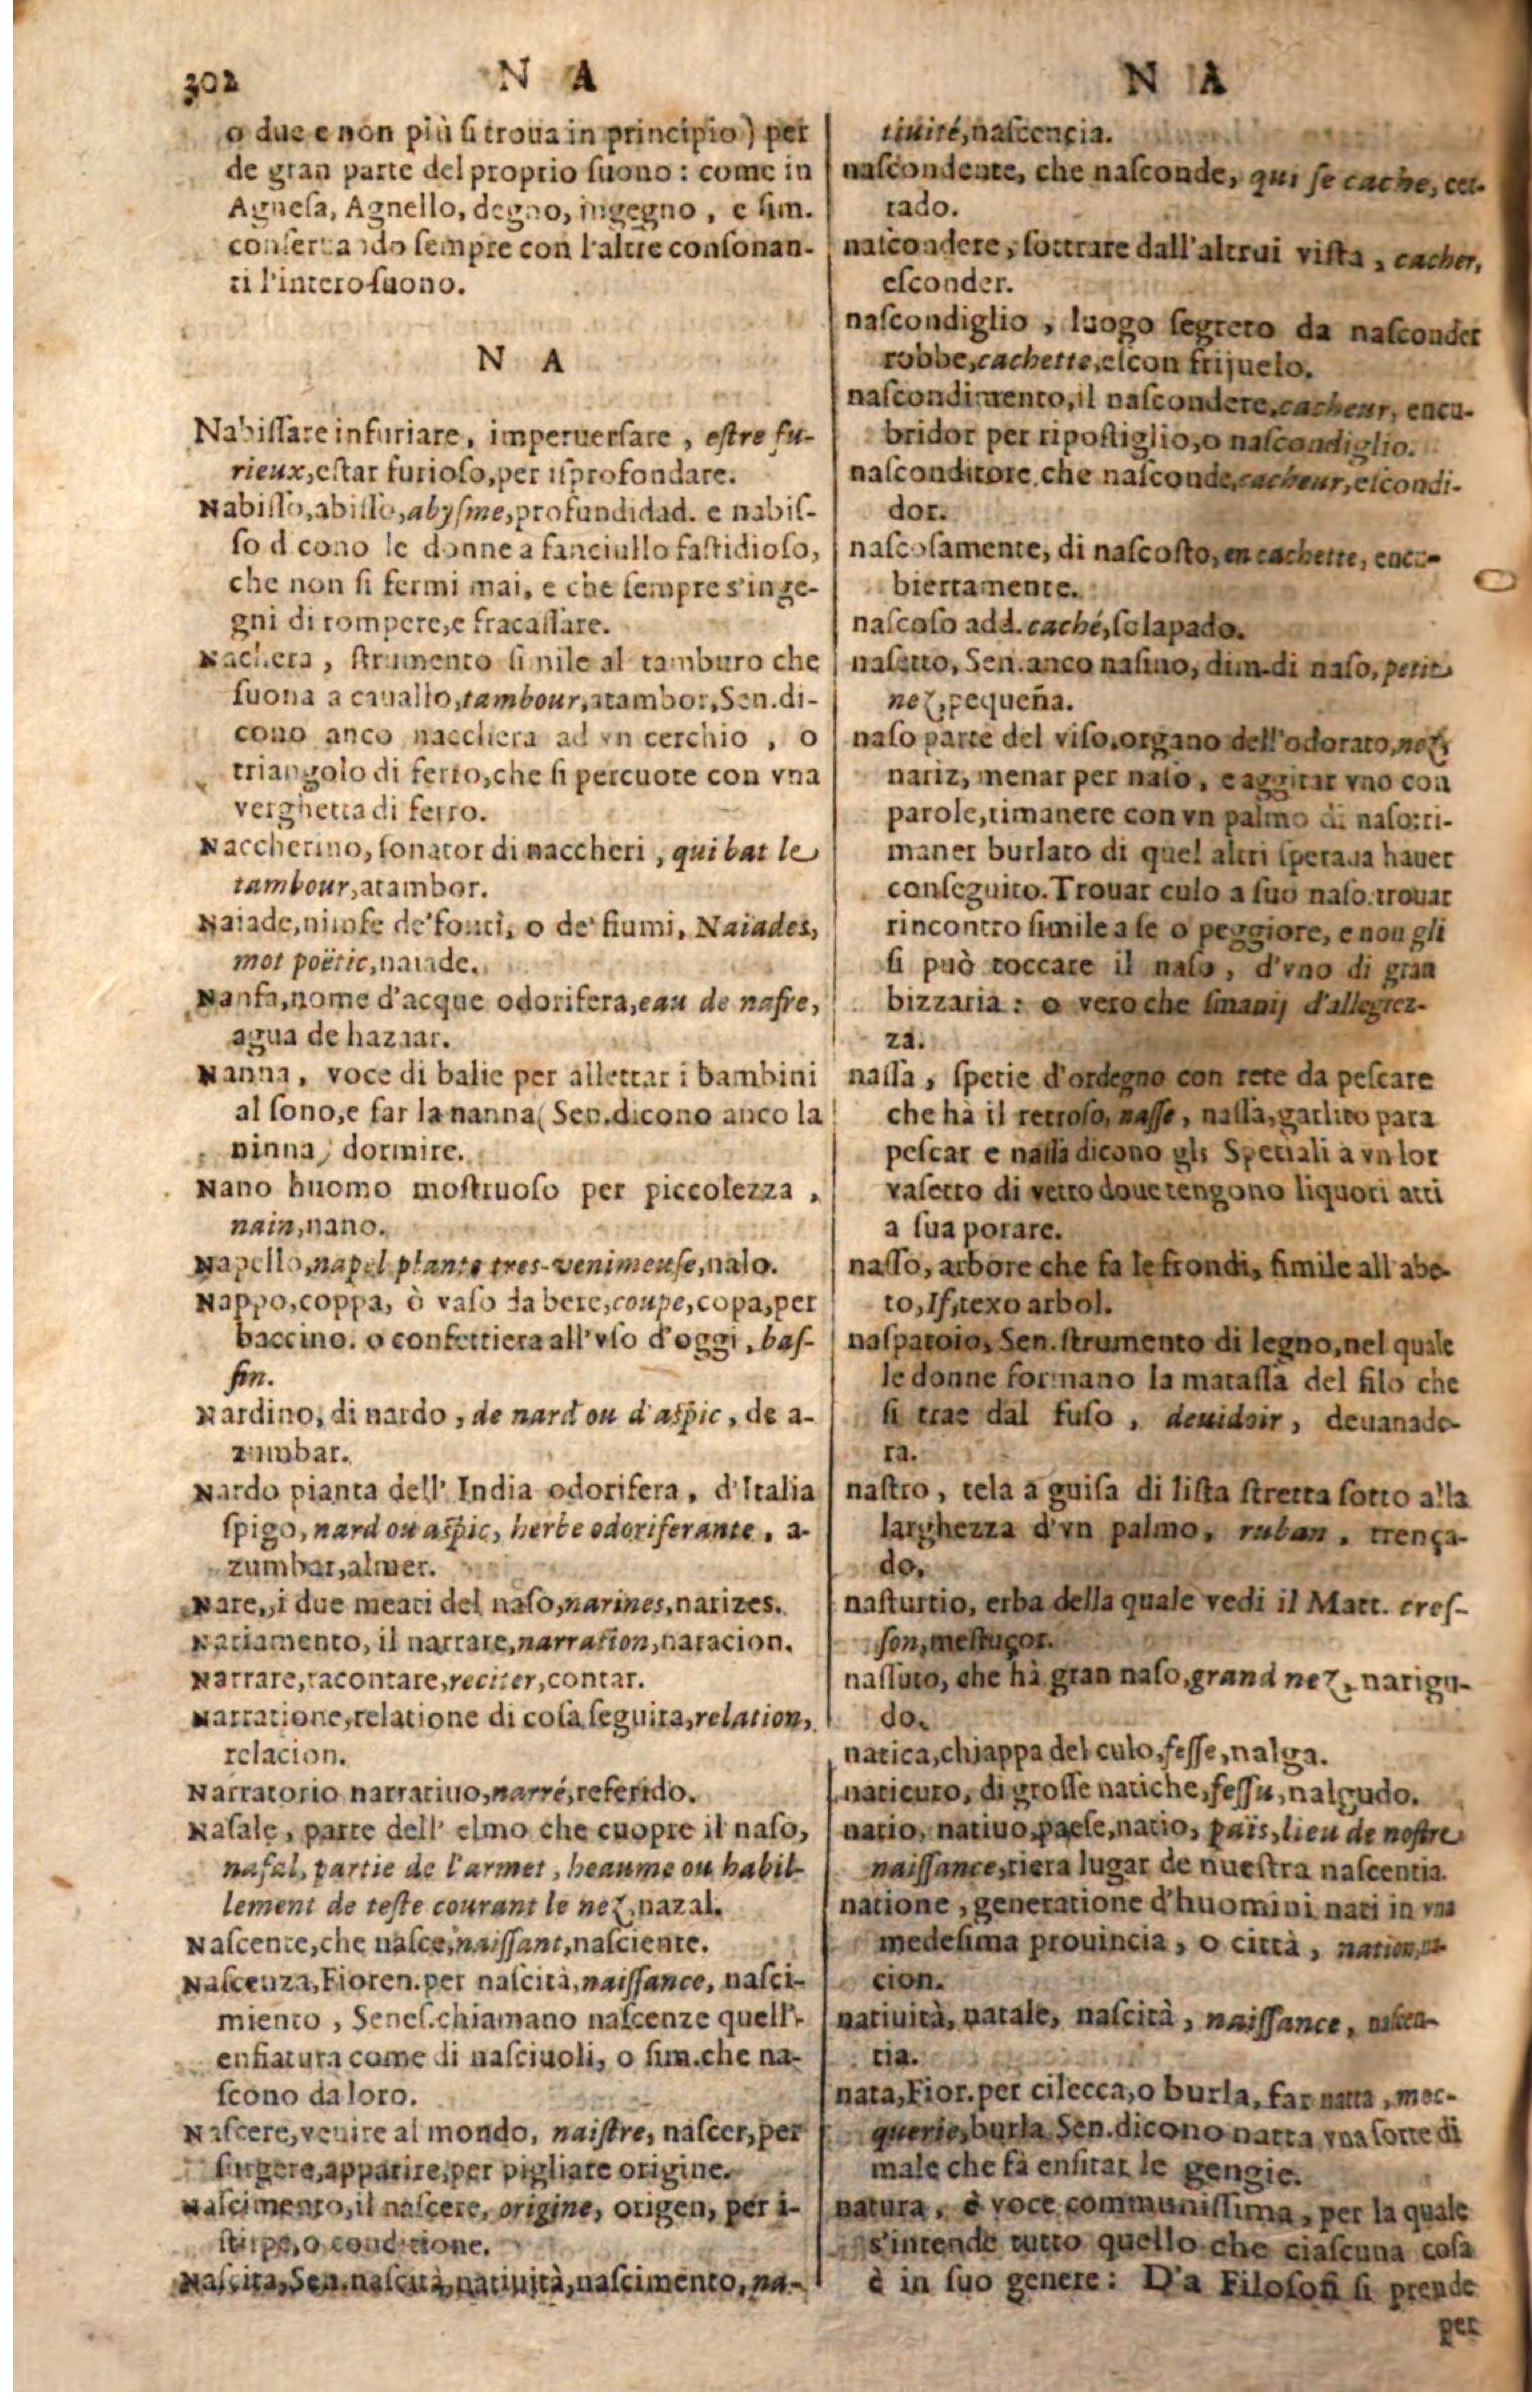 302
N A
o due e non più ſi troua in principio) per
de gran parte del proprio ſuono: come in
Agneſa, Agnello, degno, ingegno, e ſim.
conſeruando ſempre con l'altre conſonan-
ti l'intero ſuono.
N A
Nabiſſare infuriare, imperuerſare, eſtre fu-
rieux, eſtar furioſo, per iſprofondare.
Nabiſſo, abiſſo, abyſme, profundidad. e nabiſ-
ſo dicono le donne a fanciullo faſtidioſo,
che non ſi fermi mai, e che ſempre s'inge-
gni di rompere, e fracaſſare.
Nachera, ſtrumento ſimile al tamburo che
ſuona a cauallo, tambour, atambor, Sen. di-
cono anco naccliera ad vn cerchio, o
triangolo di ferro, che ſi percuote con vna
verghetta di ferro.
Naccherino, ſonator di naccheri, qui bat le
tambour, atambor.
Naiade, ninfe de'fonti, o de' fiumi, Naiades,
mot poëtic, naiade.
Nanfa, nome d'acque odorifera, eau de nafre,
agua de hazaar.
Nanna, voce di balie per allettar i bambini
al ſono, e far la nanna (Sen. dicono anco la
ninna) dormire.
Nano huomo moſtruoſo per piccolezza,
nain, nano.
Napello, napel plante tres-venimeuſe, nalo.
Nappo, coppa, ò vaſo da bere, coupe, copa, per
baccino. o confettiera all'vſo d'oggi, baſ-
ſin.
Nardino, di nardo, de nard ou d'aſpic, de a-
zumbar.
Nardo pianta dell'India odorifera, d'Italia
ſpigo, nard ou aſpic, herbe odoriferante, a-
zumbar, almer.
Nare, i due meati del naſo, narines, narizes.
Narramento, il narrare, narration, naracion.
Narrare, racontare, reciter, contar.
Narratione, relatione di coſa ſeguita, relation,
relacion.
Narratorio narratiuo, narré, referido.
Naſale, parte dell' elmo che cuopre il naſo,
naſal, partie de l'armet, heaume ou habil-
lement de teſte courant le nez, nazal.
Naſcente, che naſce, naiſſant, naſciente.
Naſcenza, Fioren. per naſcità, naiſſance, naſci-
miento, Seneſ. chiamano naſcenze quell'-
enfiatura come di naſciuoli, o ſim. che na-
ſcono da loro.
Naſcere, venire al mondo, naiſtre, naſcer, per
ſurgere, apparire, per pigliare origine.
Naſcimento, il naſcere, origine, origen, per i-
ſtirpe, o conditione.
Naſcita, Sen. naſcità, natiuità, naſcimento, na-
N A
tiuité, naſcencia.
naſcondente, che naſconde, qui ſe cache, cer-
rado.
naſcondere, ſottrare dall'altrui viſta, cacher,
eſconder.
naſcondiglio, luogo ſegreto da naſconder
robbe, cachette, eſcon frijuelo.
naſcondimento, il naſcondere, cacheur, encu-
bridor per ripoſtiglio, o naſcondiglio.
naſconditore, che naſconde, cacheur, eſcondi-
dor.
naſcoſamente, di naſcoſto, en cachette, encu-
biertamente.
naſcoſo add. caché, ſolapado.
naſetto, Sen. anco naſino, dim. di naſo, petit
nez, pequeña.
naſo parte del viſo, organo dell'odorato, nez,
nariz, menar per naſo, e aggirar vno con
parole, rimanere con vn palmo di naſo: ri-
maner burlato di quel altri ſperaua hauer
conſeguito. Trouar culo a ſuo naſo. trouar
rincontro ſimile a ſe o peggiore, e non gli
ſi può toccare il naſo, d'vno di gran
bizzaria: o vero che ſmanij d'allegrez-
za.
naſſa, ſpetie d'ordegno con rete da peſcare
che ha il retroſo, naſſe, naſſa, garlito para
peſcar e naſſa dicono gli Spetiali a vn lor
vaſetto di vetro doue tengono liquori atti
a ſua porare.
naſſo, arbore che fa le frondi, ſimile all'abe-
to, If, texo arbol.
naſpatoio, Sen. ſtrumento di legno, nel quale
le donne formano la mataſſa del filo che
ſi trae dal fuſo, deuidoir, deuanade-
ra.
naſtro, tela a guiſa di liſta ſtretta ſotto alla
larghezza d'vn palmo, ruban, trença-
do.
naſturtio, erba della quale vedi il Matt. creſ-
ſon, meſtuços.
naſſuto, che hà gran naſo, grand nez, narigu-
do.
natica, chiappa del culo, feſſe, nalga.
naticuto, di groſſe natiche, feſſu, nalgudo.
natio, natiuo, paeſe, natio, païs, lieu de noſtre
naiſſance, tiera lugar de nueſtra naſcentia.
natione, generatione d'huomini nati in vna
medeſima prouincia, o città, nation, na-
cion.
natiuità, natale, naſcità, naiſſance, naſcen-
tia.
nata, Fior. per cilecca, o burla, far natta, moc-
querie, burla Sen. dicono natta vna ſorte di
male che fà enfirar le gengie.
natura, è voce communiſſima, per la quale
s'intende tutto quello che ciaſcuna coſa
è in ſuo genere: D'a Filoſofi ſi prende
per